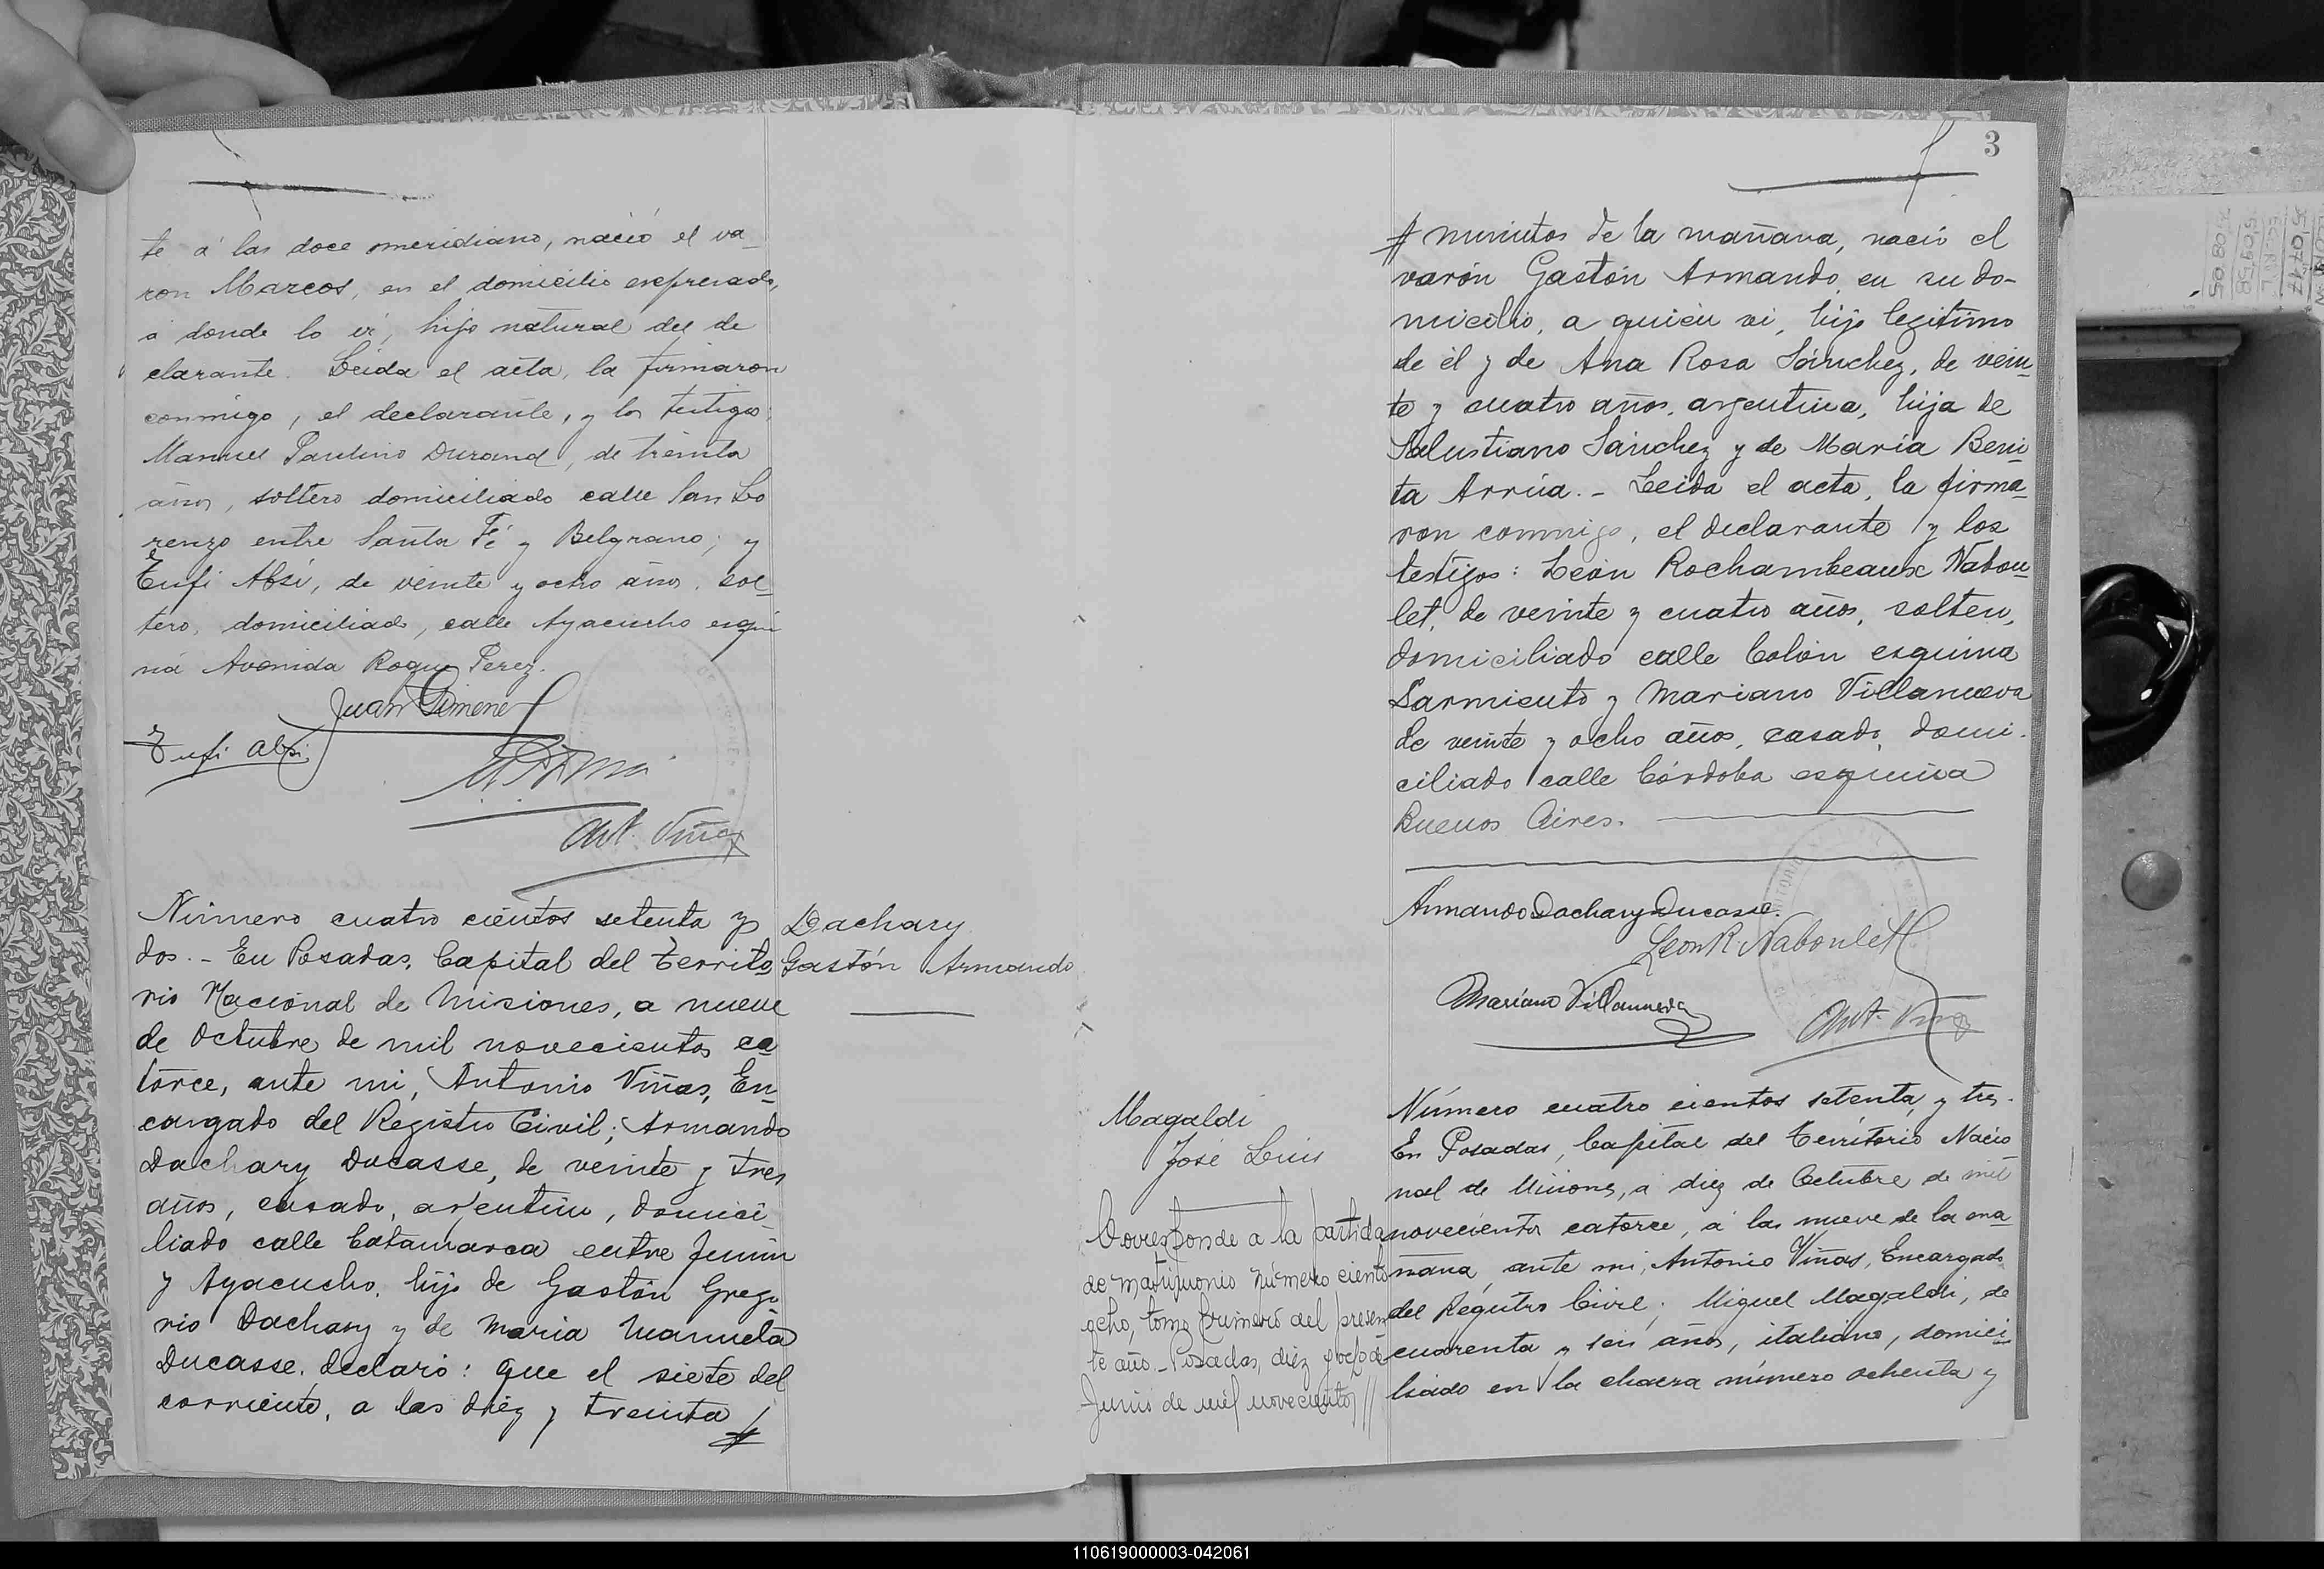 te á las doce meridiano, nació el va_
ron Marcos, en el domicilio expresado,
a donde lo ví, hijo natural del de
clarante. Leida el acta, la firmaron
conmigo, el declarante, y los testigos,
Manuel Paulino Durand, de treinta
años, soltero domiciliado calle San Lo
renzo entre Santa Fé y Belgrano; y
Tufi Absi, de veinte y ocho años, sol_
tero, domiciliado, calle Ayacucho esqui
na Avenida Roque Perez.
Juan Gimenez
Tufi Absi
Ant. Viñas
Número cuatro cientos setenta y
dos.- En Posadas, Capital del Territo
rio Nacional de Misiones, a nueve
de Octubre de mil novecientos ca
torce, ante mi, Antonio Viñas, En_
cargado del Registro Civil; Armando
Dachary Ducasse, de veinte y tres
años, casado, argentino, domici_
liado calle Catamarca entre Junin
y Ayacucho, hijo de Gastón Grego
rio Dachary y de Maria Manuela
Ducasse, declaró: que el siete del
corriente, a las diez y treinta #
Dachary
Gastón Armando
3
# minutos de la mañana, nació el
varón Gastón Armando, en su do-
micilio, a quien vi, hijo legítimo
de él y de Ana Rosa Sánchez, de vein_
te y cuatro años, argentina, hija de
Salustiano Sánchez y de María Beni_
ta Arrúa.- Leida el acta, la firma_
ron conmigo, el declarante y los
testigos: León Rochambeaux Nabou_
let, de veinte y cuatro años, soltero,
domiciliado calle Colón esquina
Sarmiento y Mariano Villanueva
de veinte y ocho años, casado, domi-
ciliado calle Córdoba esquina
Buenos Aires.
Armando Dachary Ducasse.
Leon R. Naboulet
Mariano Villanueva
Ant. Viñas
Magaldi
José Luis
Corresponde a la partida
de matrimonio número ciento
ocho, tomo primero del presen
te año.- Posadas, diez y ocho de
Junio de mil novecientos //
Número cuatro cientos setenta y tres.
En Posadas, Capital del Territorio Nacio
nal de Misiones, a diez de Octubre de mil
novecientos catorce, a las nueve de la ma
ñana, ante mi, Antonio Viñas, Encargado
del Registro Civil; Miguel Magaldi, de
cuarenta y seis años, italiano, domici_
liado en la chacra número ochenta y
110619000003-042061